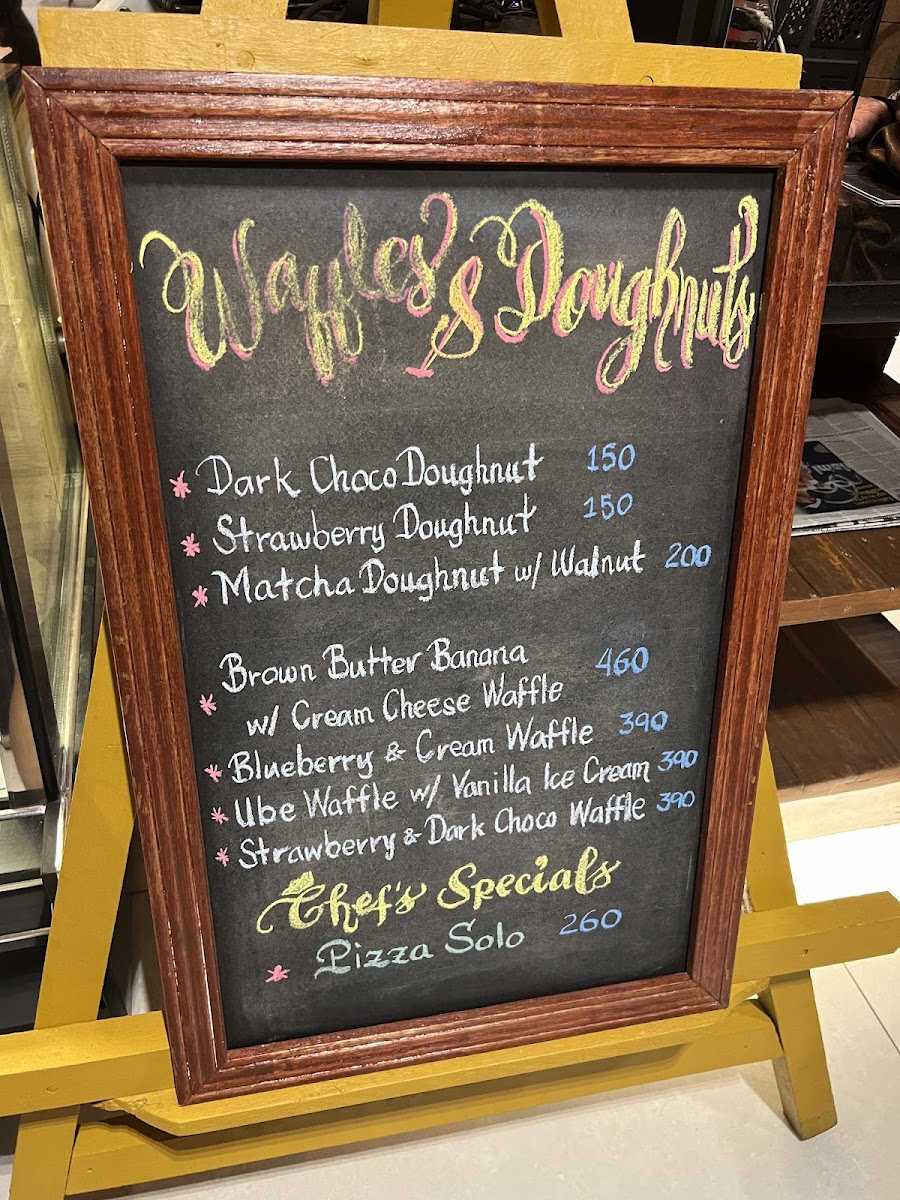 Waffles & Doughnuts
* Dark Choco Doughnut 150
* Strawberry Doughnut 150
* Matcha Doughnut w/ Walnut 200
* Brown Butter Banana 460
w/ Cream Cheese Waffle
* Blueberry & Cream Waffle 390
* Ube Waffle w/ Vanilla Ice Cream 390
* Strawberry & Dark Choco Waffle 390
Chef's Specials
* Pizza Solo 260